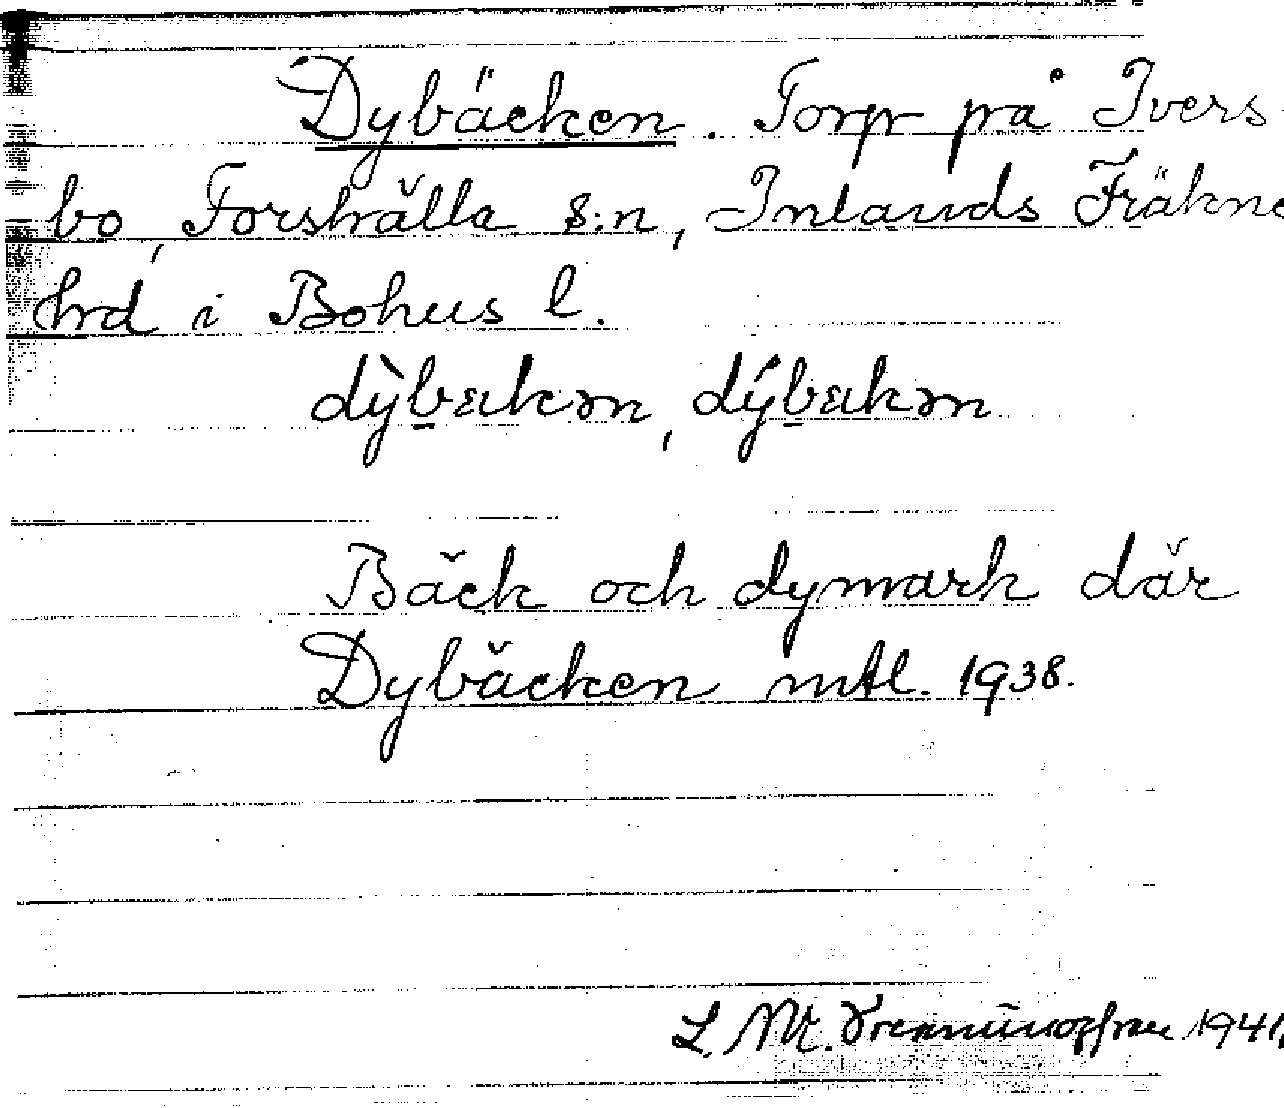 Dybäcken. Torp på Ivers
bo, Forshälla s:n, Inlands Fräkne
hrd i Bohus l.
dỳbakən, dýbakən
Bäck och dymark där
Dybäcken mtl. 1938.
L. M. 1941.